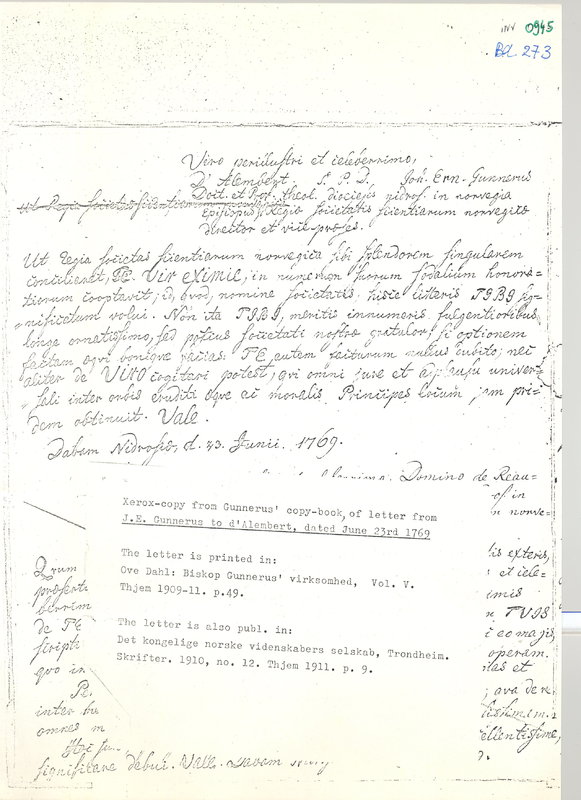 INV 0945
Bd. 273
Viro perillustri et celeberrimo,
D' Alembert. S. P. D. Joh. Ern. Gunnerus
Doct. et Prof. theol. diocejis nidros. in norvegia
Episcopus, Regiæ societatis scientiarum norvegicæ
director et vice-præses.
Ut regia societas scientiarum norvegica sibi splendorem singularem
conciliaret, TE, Vir eximie, in numerum suorum sodalium honora=
tiorum cooptavit; id, qvod, nomine societatis, hisce literis TIBI sig=
nificatum volui. Non ita TIBI, meritis innumeris fulgentioribus
longe ornatissimo, sed potius societati nostræ gratulor, si optionem
factam æqvi boniqve facias. TE autem facturum nullus dubito; nec
aliter de VIRO cogitari potest, qvi omni jure et applausu univer=
sali inter orbis eruditi æqve ac moralis Principes locum jam pri=
dem obtinuit. Vale.
Dabam Nidrosiæ, d. 23. Junii. 1769.
Domino de Reau=
of in
n norve=
Xerox-copy from Gunnerus' copy-book, of letter from
J.E. Gunnerus to d'Alembert, dated June 23rd 1769
The letter is printed in:
Ove Dahl: Biskop Gunnerus' virksomhed, Vol. V.
Thjem 1909-11. p.49.
The letter is also publ. in:
Det kongelige norske videnskabers selskab, Trondheim.
Skrifter. 1910, no. 12. Thjem 1911. p. 9.
lis exteris,
et cele=
imis
n TUIS
i eo majis,
operam.
nas et
; ava de re
lissimam.
ellentissime,
Qvum
profecti
berrim
de TE
scripti
qvo in
PE.
inter hu
omnes m
significare debui. Vale.